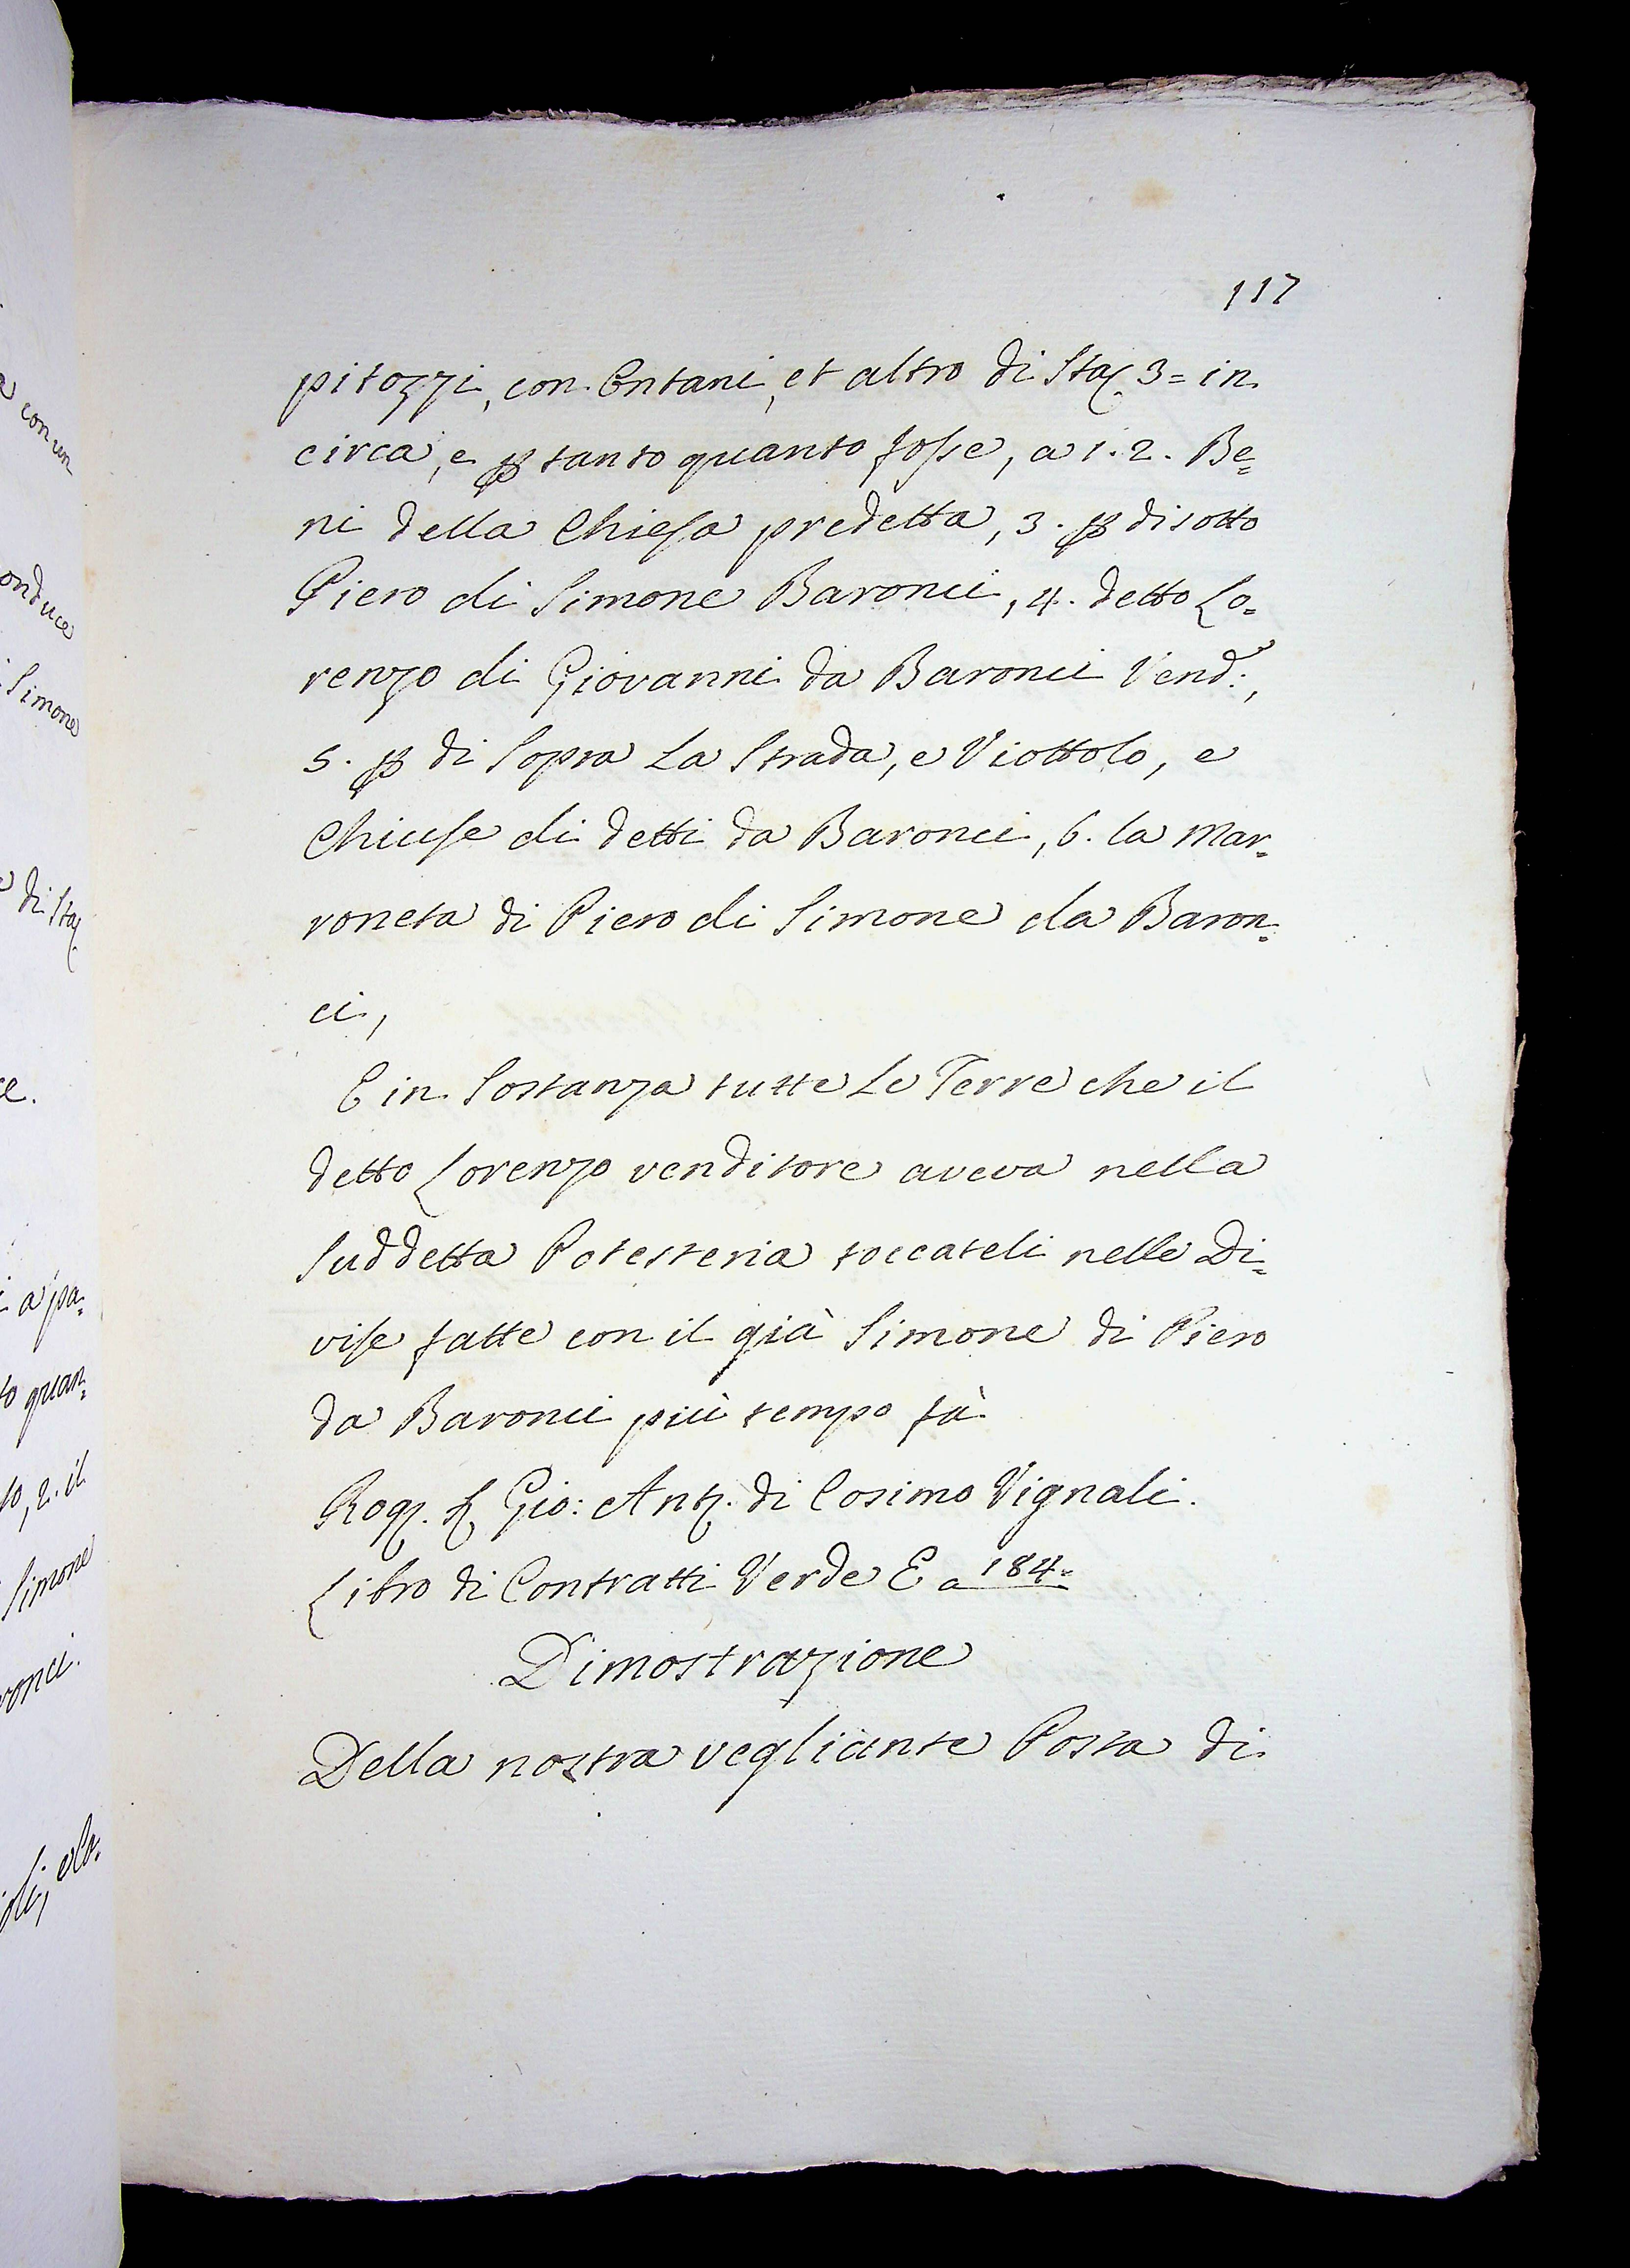 117
pitozzi, con Ontani, et altro di Sta. 3= in
circa, e p tanto quanto fosse, a 1. 2. Be=
ni della Chiesa predetta, 3. p disotto
Piero di Simone Baronci, 4. detto Lo=
renzo di Giovanni da Baronci Vend:,
5. p di Sopra La Strada, e Viottolo, e
Chiuse di detti da Baronci, 6. la Mar=
roneta di Piero di Simone da Baron=
ci,
E in Sostanza tutte Le Terre che il
detto Lorenzo venditore aveva nella
Suddetta Potesteria toccateli nelle Di=
vise fatte con il già Simone di Piero
da Baronci più tempo fà
Rog. Gio: Ant. di Cosimo Vignali.
Libro di Contratti Verde E a 184=
Dimostrazione
Della nostra vegliante Posta di
a con un
onduce
Simone
di Sta
e.
a pa=
to quan=
to, 2. il
Simone
ronci.